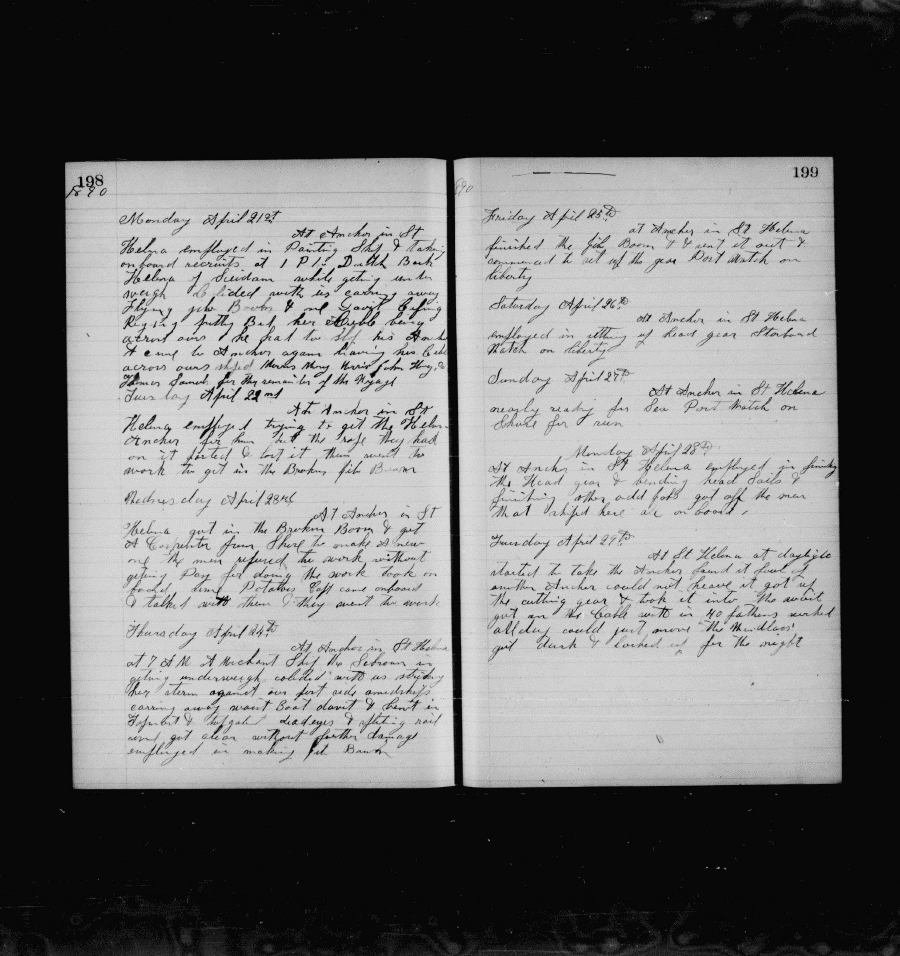 198
1890
Monday April 21st
At Anchor in St
Helena employed in Painting Ship & taking
onboard recruits at 1 P.M. Dutch Bark
Helena of while geting under
weigh Colided with us carring away
Flying jib Boom &
Riging her Cable being
across ours he had to slip his Anchor
& came to Anchor again having his Cable
across ours shiped Manuel John
Thomas for the remainder of the Voyage
Tuesday April 22nd
At Anchor in St
Helena employed trying to get the Helena
Anchor for him but the rope they had
on it parted & lost it then went to
work to get in the Broken jib Boom
Wednesday April 23rd
At Anchor in St
Helena got in the Broken Boom & got
A Carpenter from Shore to make a new
one the men refused to work without
geting Pay for doing the work took on
board some Potatoes Capt came onboard
& talked with them & they went to work
Thursday April 24th
At Anchor in St Helena
at 7 A M A Merchant Ship the in
geting underweigh colided with us striking
her stern against our port side amedships
carring away waist Boat davit & bent in
& deadeyes & rail
and got clear without further damage
employed in making jib Boom
199
1890
Friday April 25th
at Anchor in St Helena
finished the Jib Boom & sent it out &
commenced to set up the gear Port Watch on
liberty
Saturday April 26th
At Anchor in St Helena
employed in setting up head gear Starboard
Watch on liberty
Sunday April 27th
At Anchor in St Helena
nearly ready for Sea Port Watch on
Shore for a run
Monday April 28th
At Anchor in St Helena employed in
the Head gear & bending head Sails &
finishing other odd jobs got off the men
that shiped here all on board.
Tuesday April 29th
At St Helena at daylight
started to take the Anchor found it foul of
another Anchor could not heave it got up
the cutting gear & took it into the waist
got in the Cable with in 40 fathoms worked
all day could just move the Windlass
got dark & up for the night